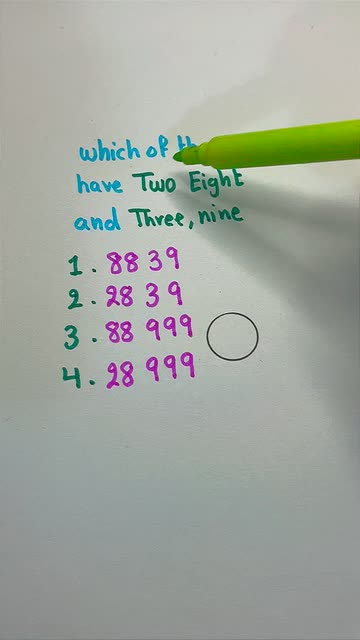 which of
have Two Eight
and Three, nine
1. 88 39
2. 28 39
3. 88 999
4. 28 999